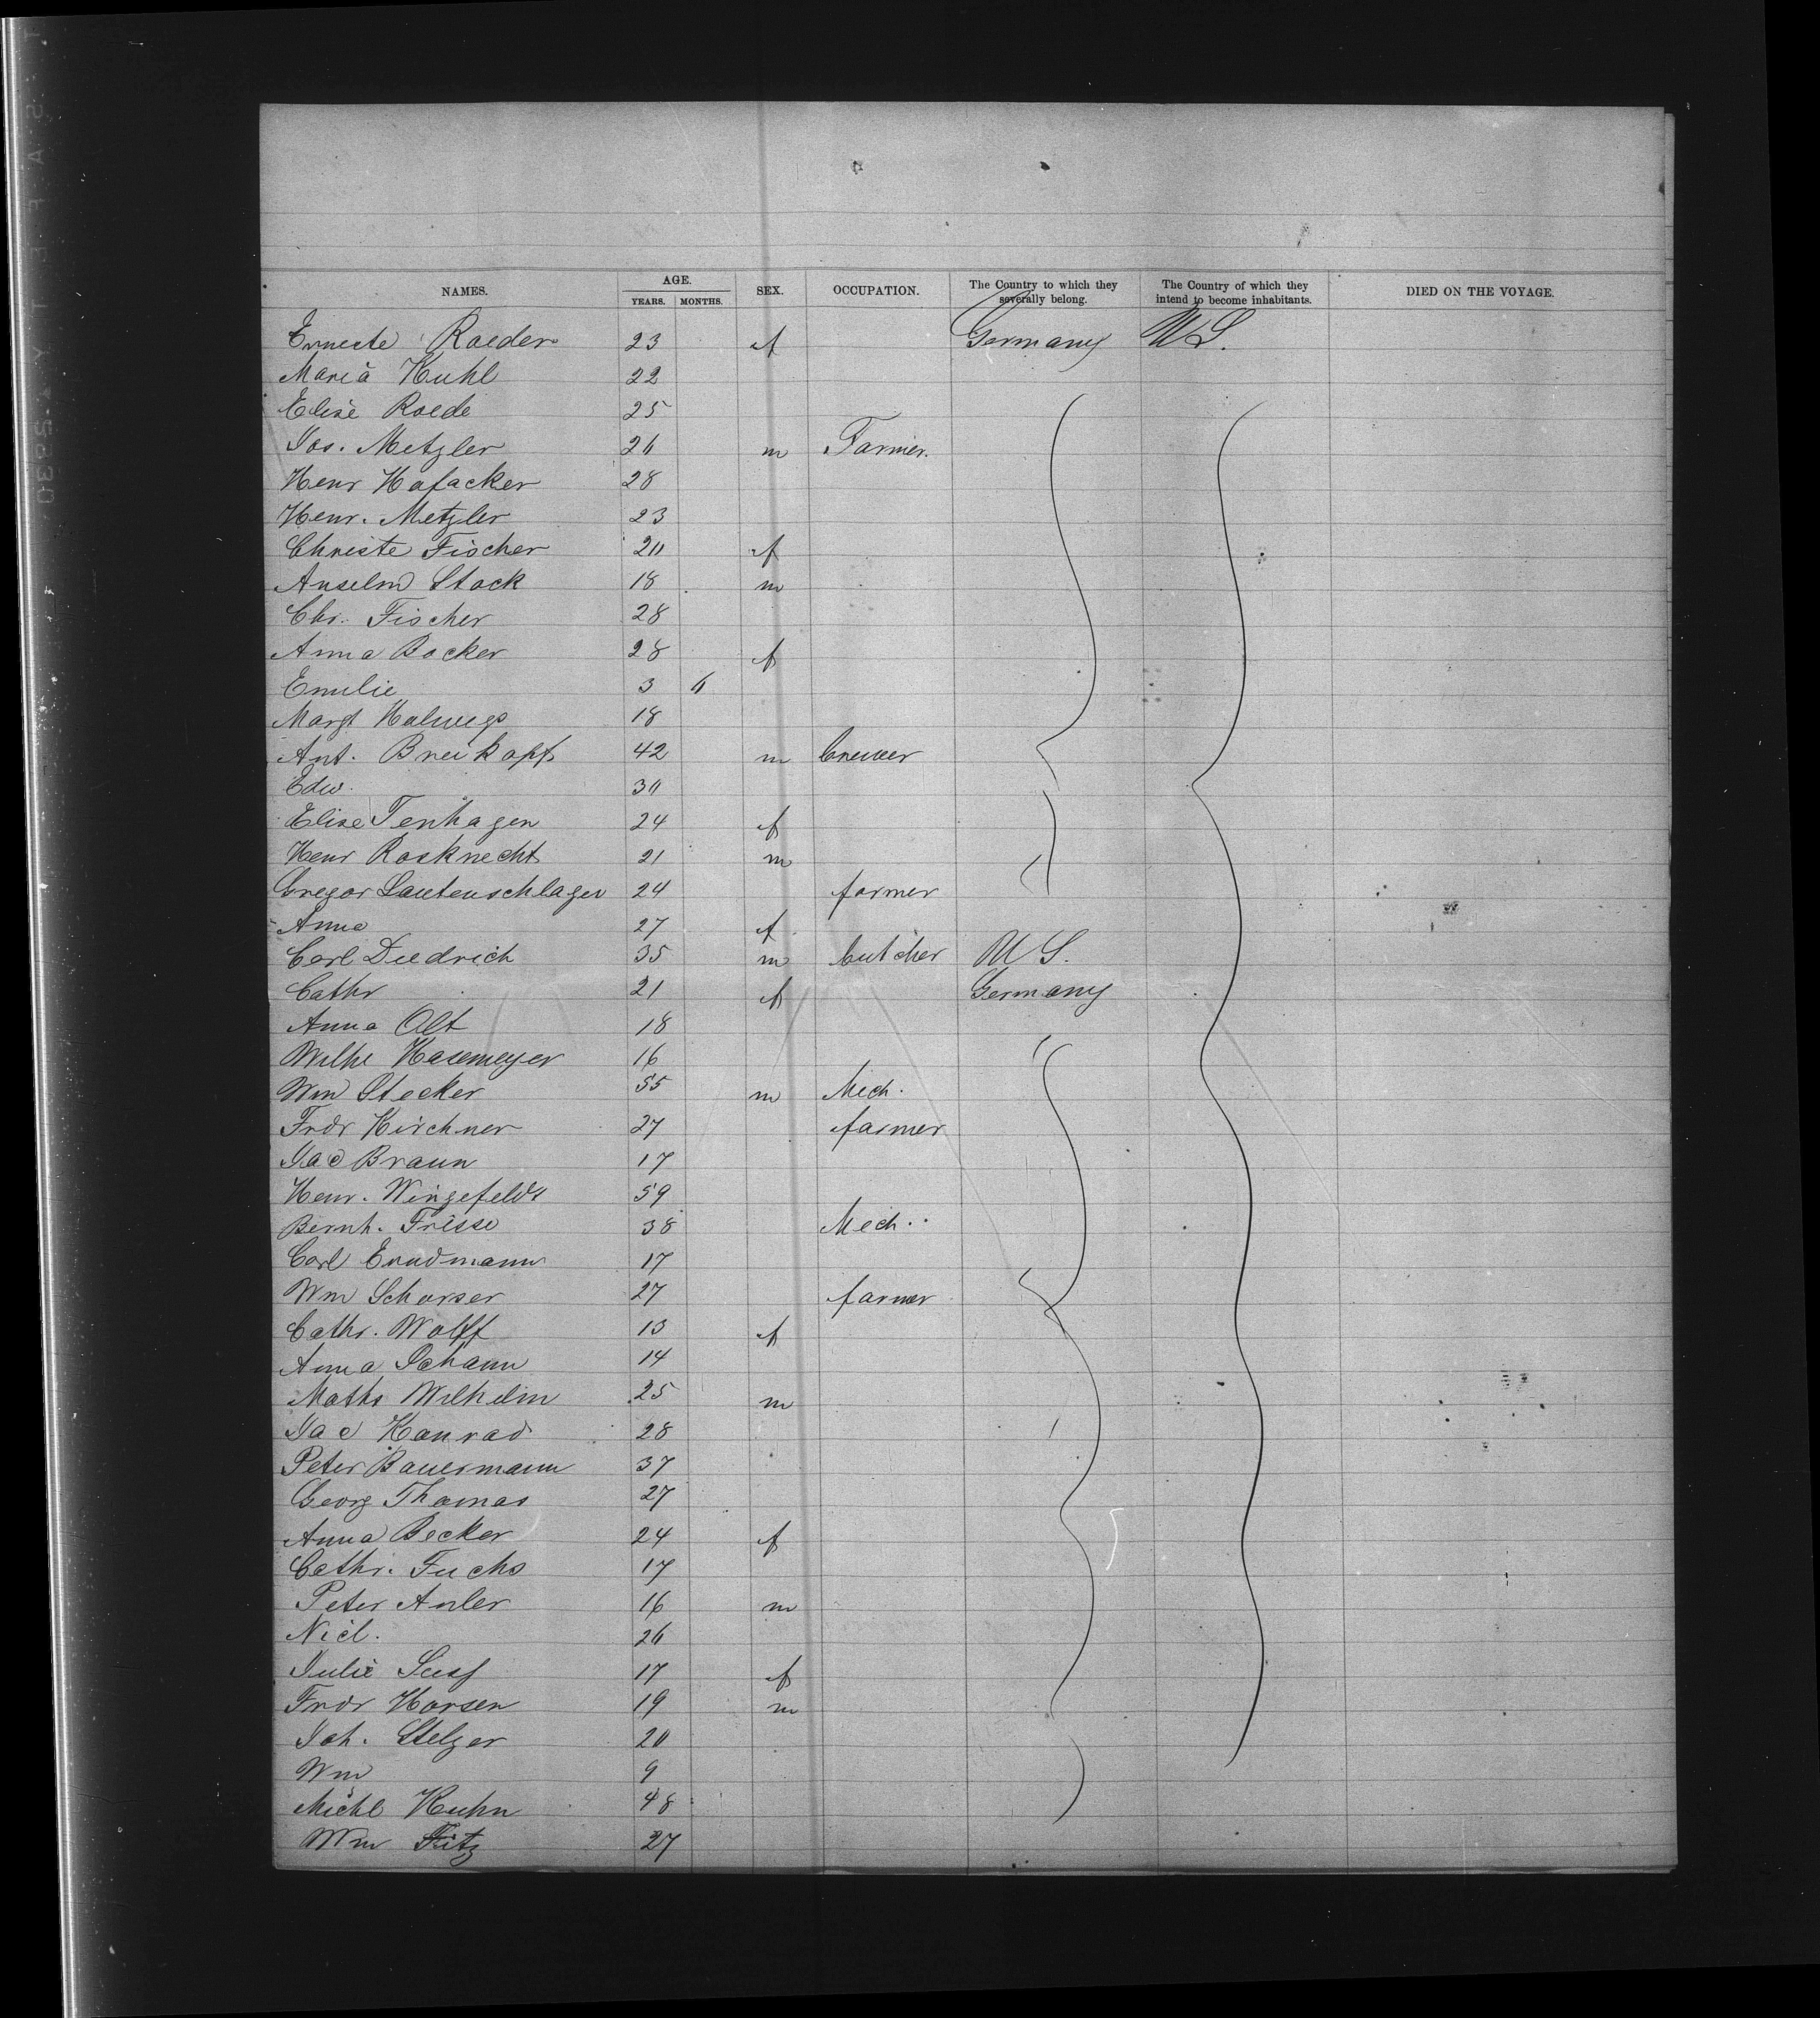 NAMES. AGE. SEX. OCCUPATION. The Country to which they severally belong. The Country of which they intend to become inhabitants. DIED ON THE VOYAGE.
YEARS. MONTHS.
Erneste Roeder 23 f Germany U S.
Maria Kuhl 22
Elise Roede 25
Jos. Metzler 26 m Farmer.
Henr Hafacker 28
Henr. Metzler 23
Christe Fischer 20 f
Anselm Stock 18 m
Chr. Fischer 28
Anna Bocker 28 f
Emilie 3 6
Margt Halwegs 18
Ant. Breikopf 42 m brewer
Edw. 30
Elise Tenhagen 24 f
Henr Rosknecht 21 m
Gregor Lautenschlager 24 farmer
Anna 27 f
Carl Diedrich 35 m butcher U S.
Cathr 21 f Germany
Anna Alt 18
Wilhe Hasemeyer 16
Wm Stecker 55 m Mech.
Frdr Kirchner 27 farmer
Jac Braun 17
Henr. Wingefeldt 59
Bernh. Frisse 38 Mech.
Carl Erudmann 17
Wm Schorser 27 farmer
Cathr. Wolff 13 f
Anna Schann 14
Maths Wilhelm 25 m
Jac Konrad 28
Peter Bauermann 37
Georg Thomas 27
Anna Becker 24 f
Cathr. Fuchs 17
Peter Anler 16 m
Nicl. 26
Julie 17 f
Frdr Horsen 19 m
Joh. Stelzer 20
Wm 9
Michl Kuhn 48
Wm Fritz 27